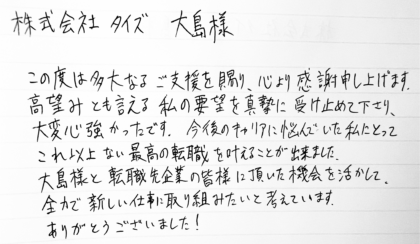 株式会社 タイズ 大島様
この度は多大なるご支援を賜り、心より感謝申し上げます。
高望みとも言える私の要望を真摯に受け止めて下さり、
大変心強かったです。今後のキャリアに悩んでいた私にとって
これ以上ない最高の転職を叶えることが出来ました。
大島様と転職先企業の皆様に頂いた機会を活かして、
全力で新しい仕事に取り組みたいと考えています。
ありがとうございました!